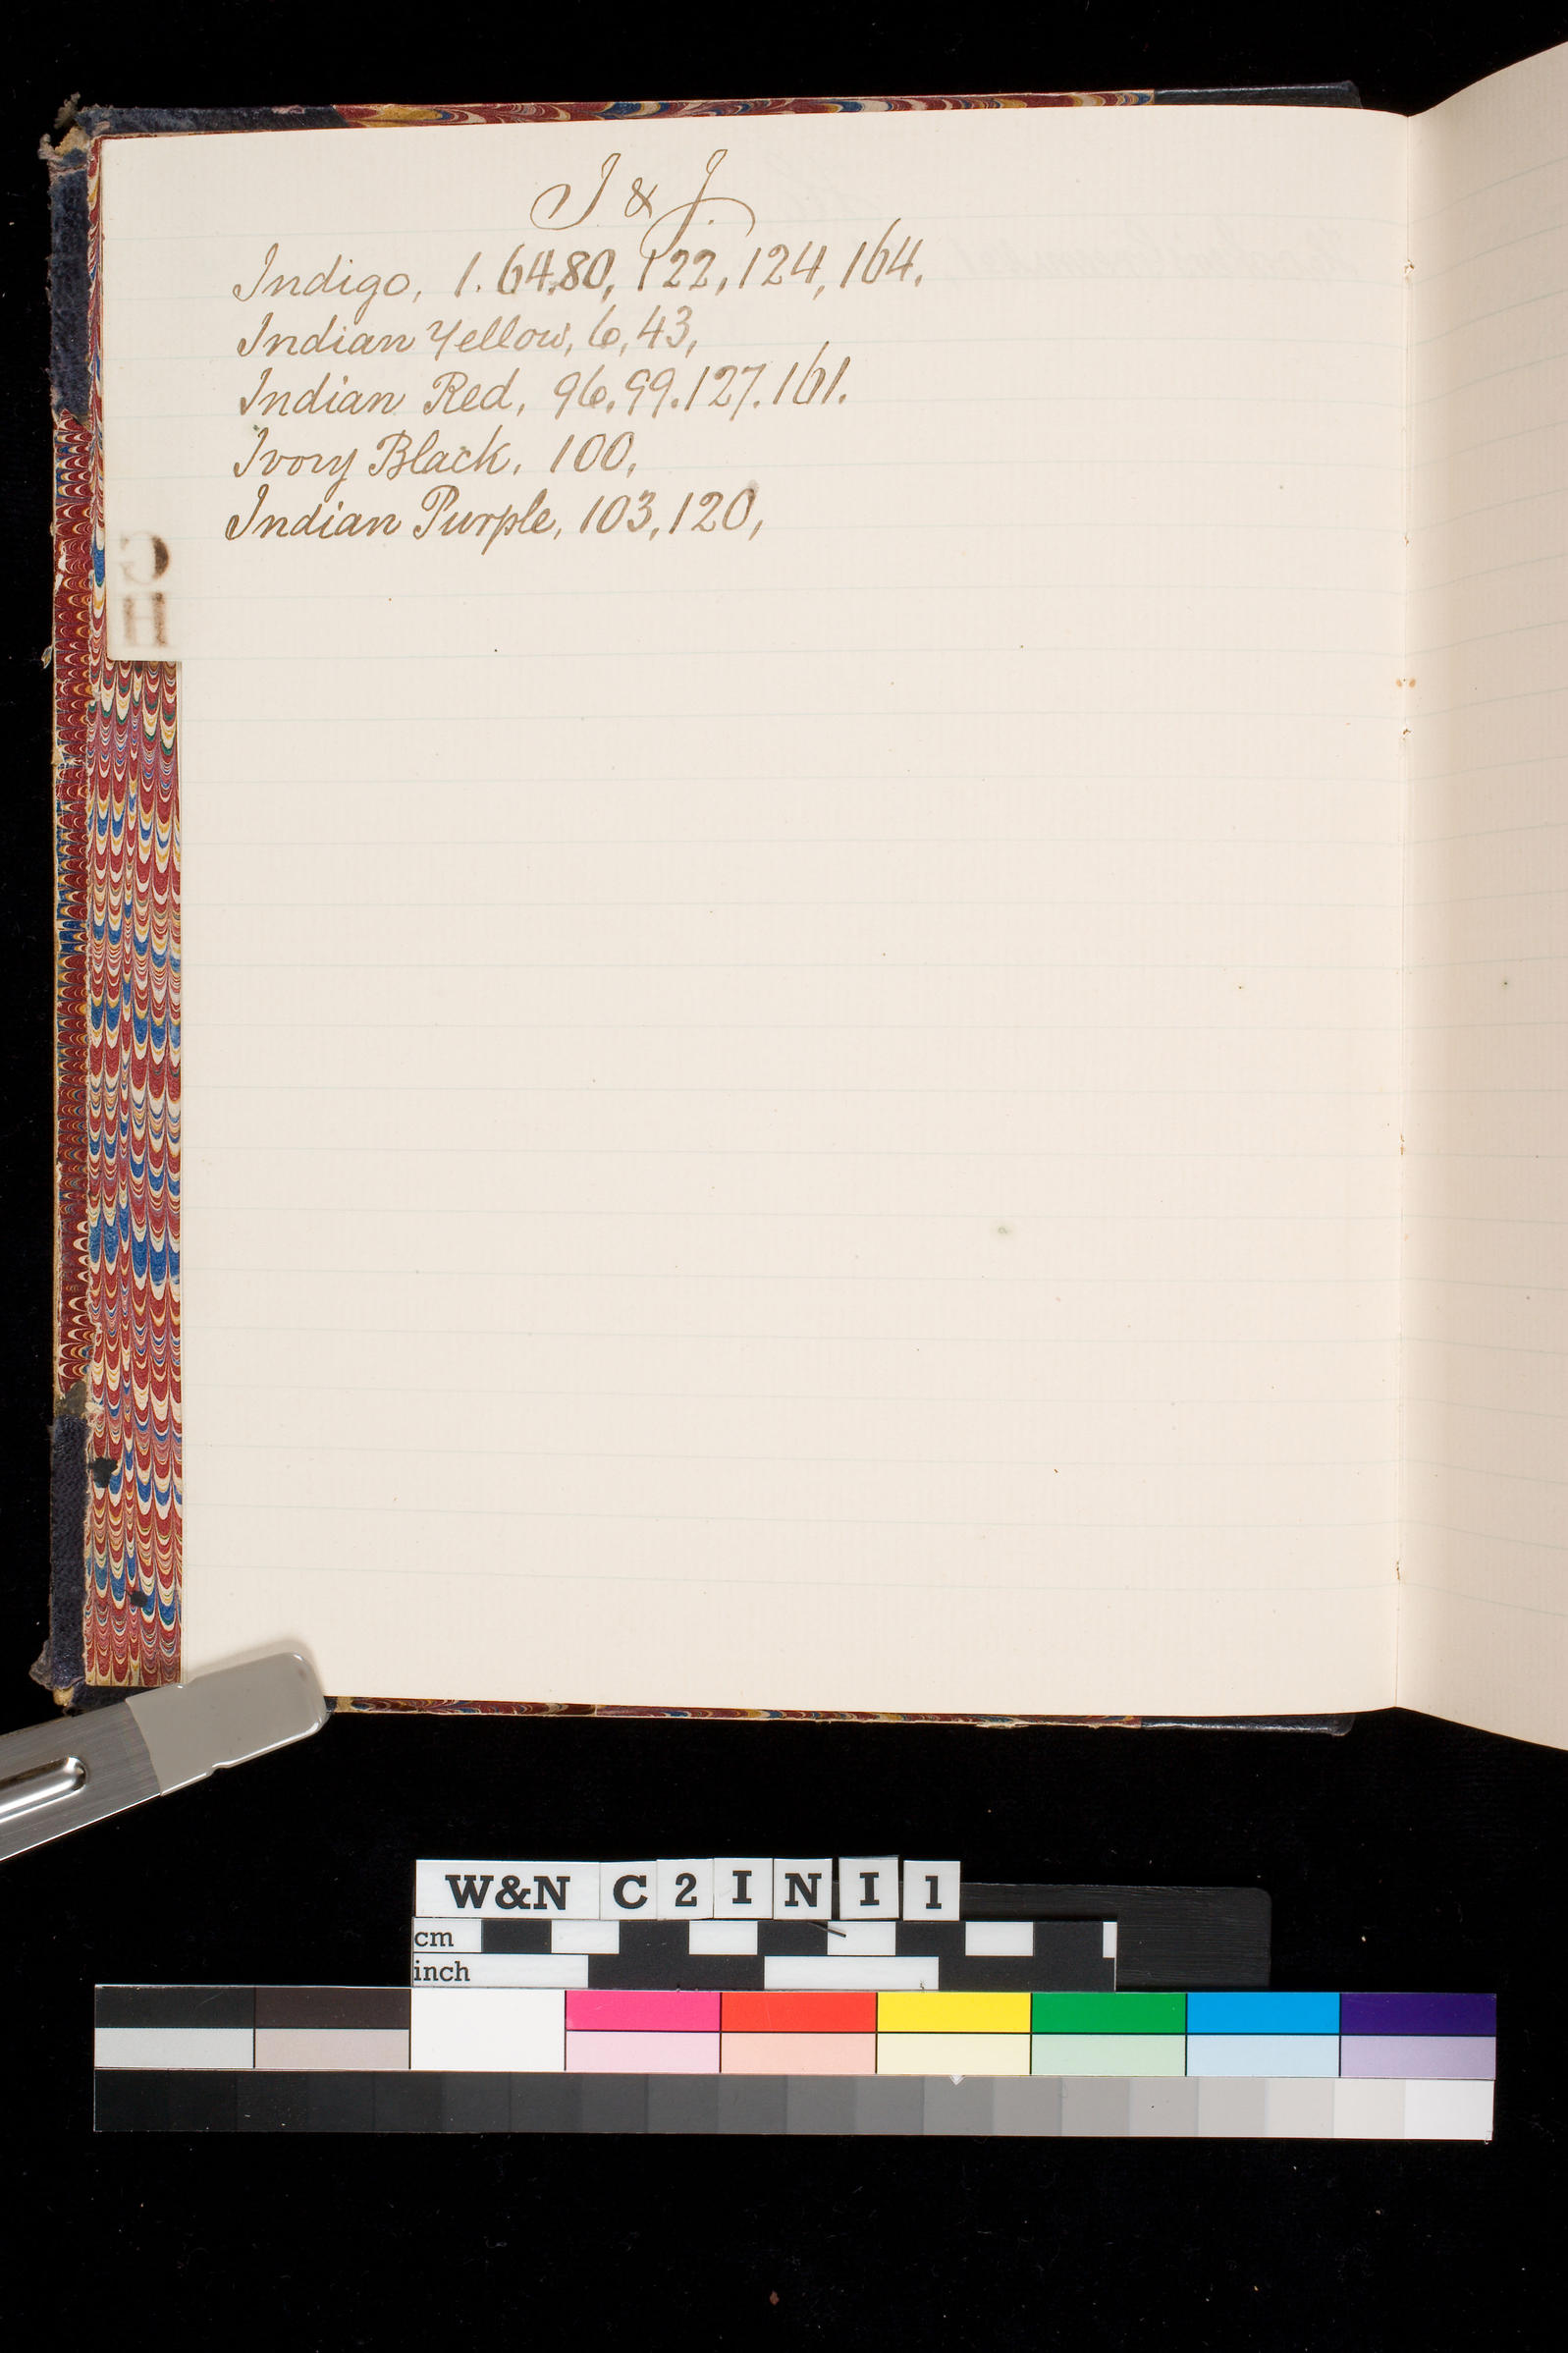 I & J
Indigo, 1. 64.80, 122, 124, 164.
Indian Yellow, 6, 43,
Indian Red, 96. 99. 127. 161.
Ivory Black, 100,
Indian Purple, 103, 120,
G
H
W&N C 2 I N I 1
cm
inch